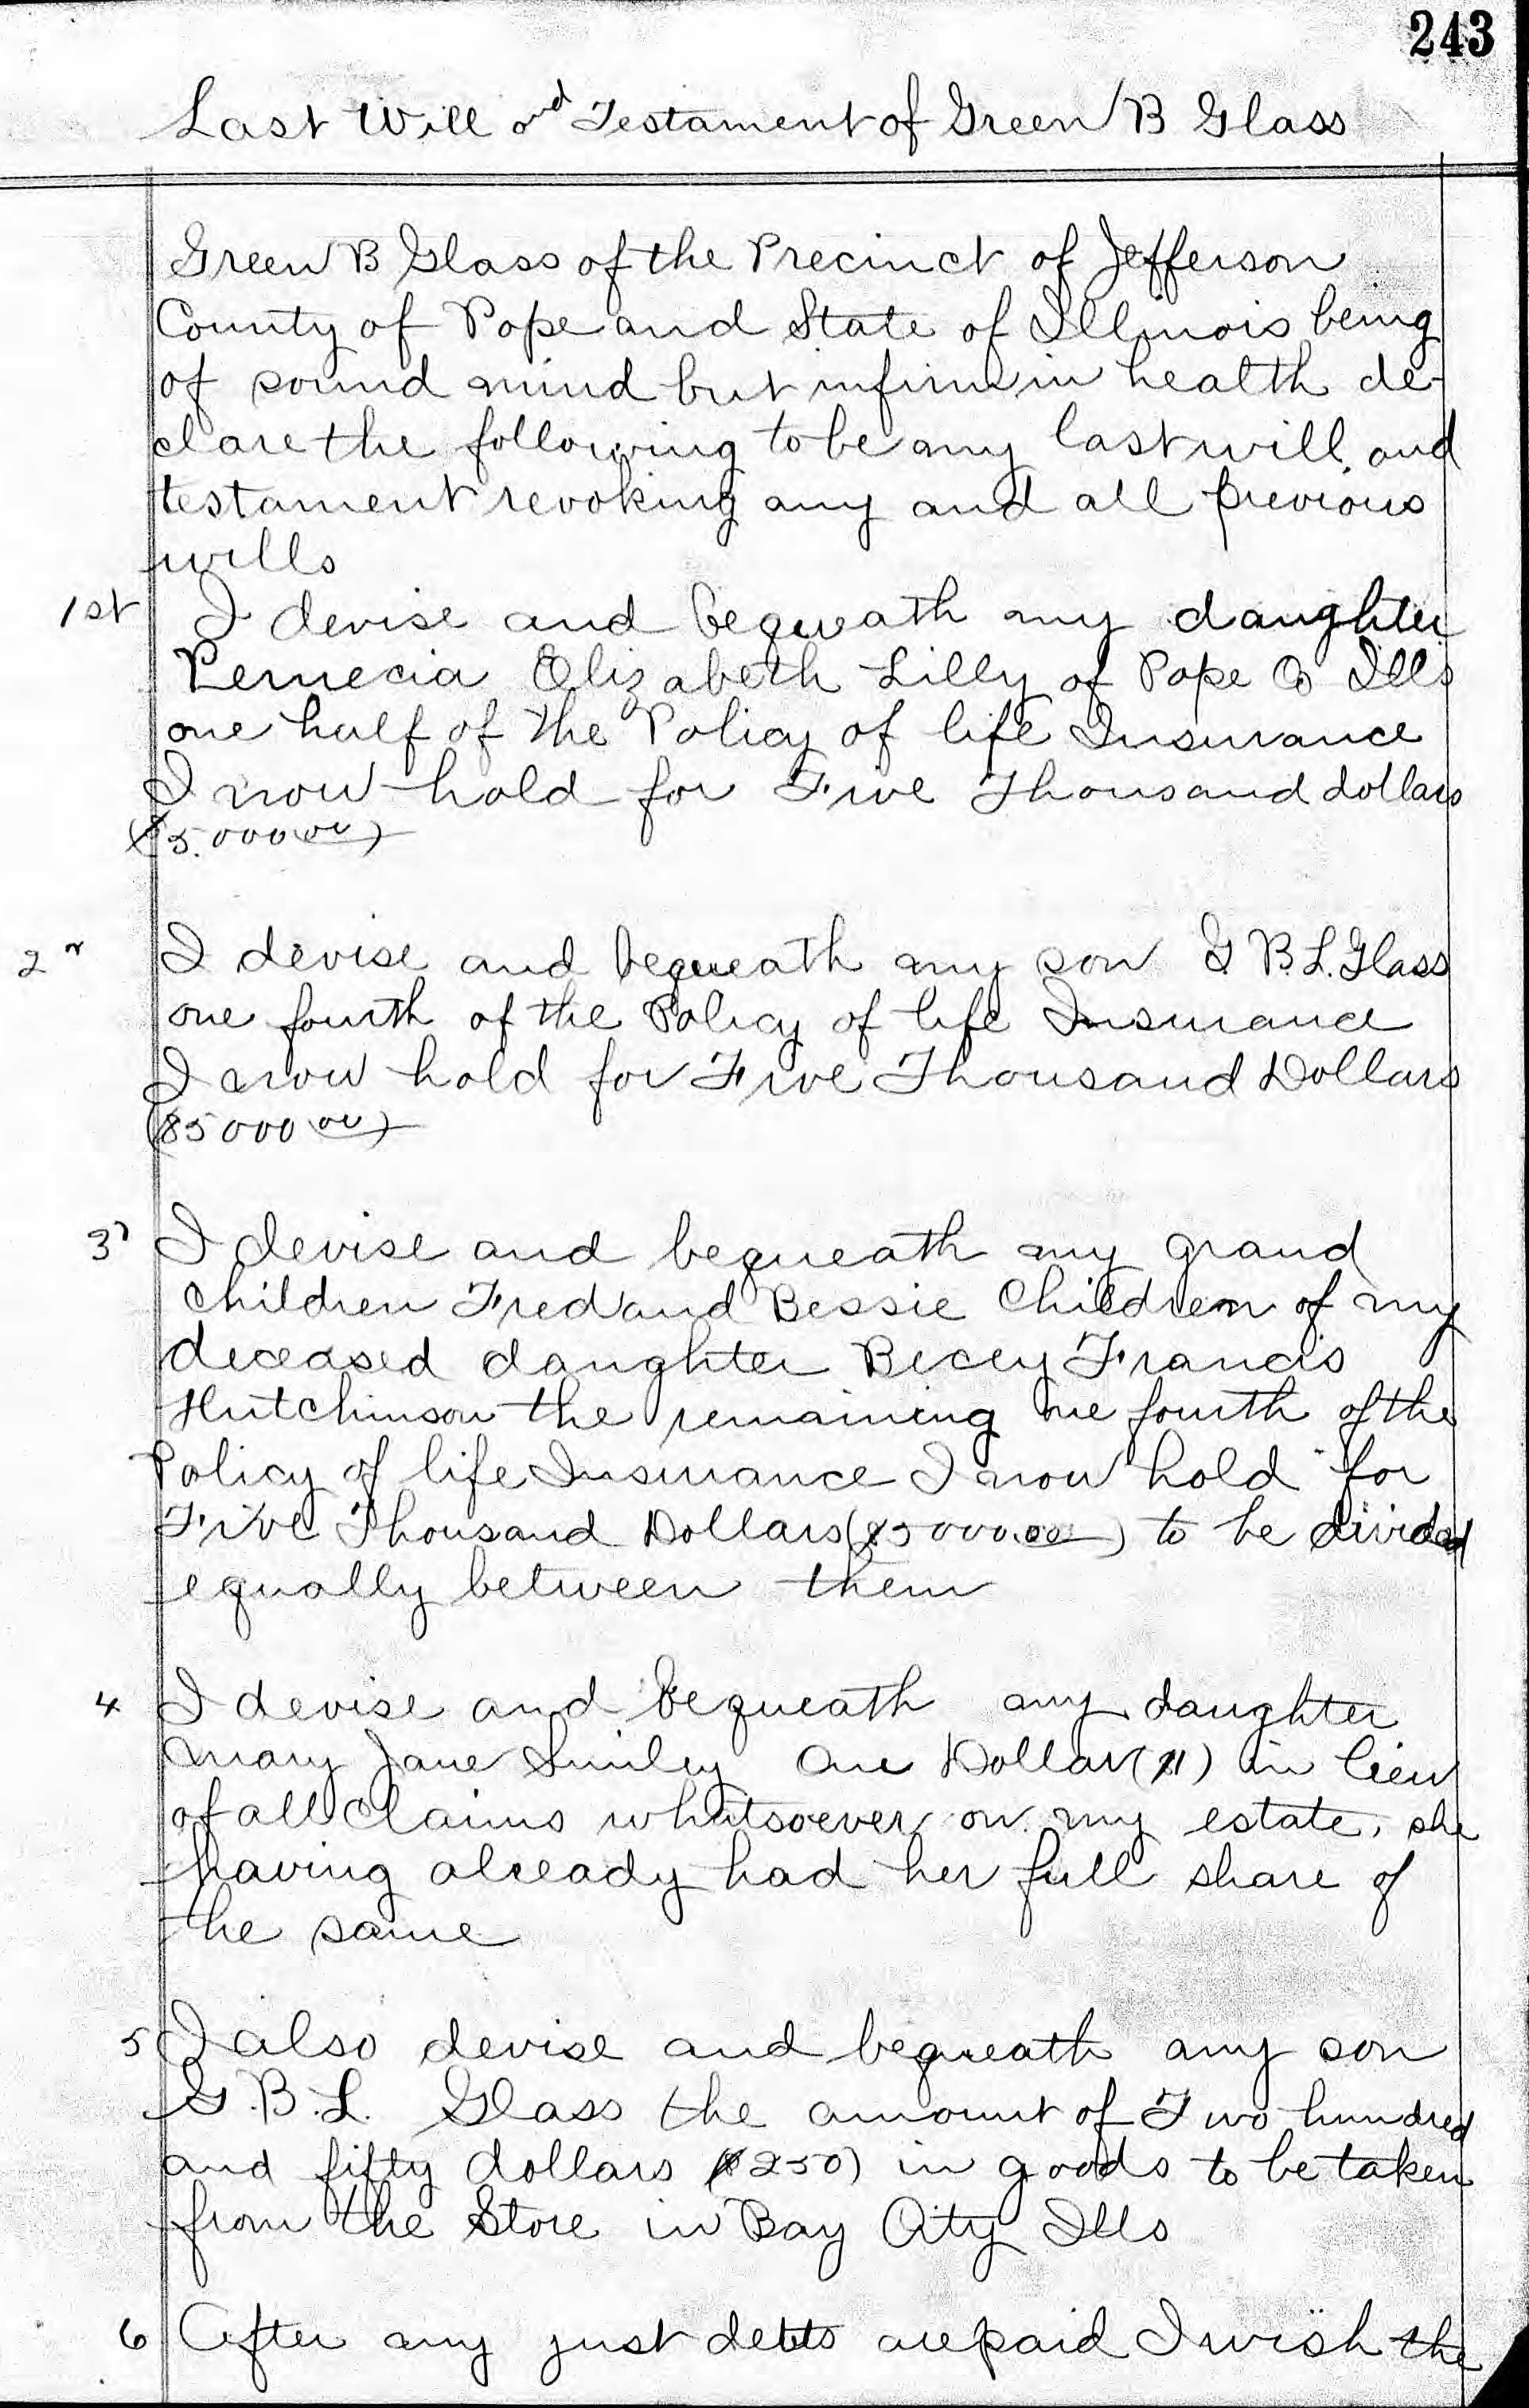 243
Last Will and Testament of Green B Glass
Green B Glass of the Precinct of Jefferson
County of Pope and State of Illinois being
of sound mind but infirm in health de-
clare the following to be my last will and
testament revoking any and all previous
wills
1st I devise and bequeath my daughter
Pernecia Elizabeth Lilly of Pope Co Ills
one half of the Policy of life Insurance
I now hold for Five Thousand dollars
($5.000 00)
2n I devise and bequeath my son G B. L. Glass
one fourth of the Policy of life Insurance
I now hold for Five Thousand Dollars
($5000 00)
3d I devise and bequeath my grand
children Fred and Bessie Children of my
deceased daughter Becey Francis
Hutchinson the remaining one fourth of the
Policy of life Insurance I now hold for
Five Thousand Dollars ($5000.00) to be divided
equally between them
4 I devise and bequeath my daughter
Mary Jane Smiley One Dollar ($1) in lieu
of all Claims whatsoever on my estate, she
having already had her full share of
the same
5 I also devise and bequeath my son
G. B. L. Glass the amount of Two hundred
and fifty dollars ($250) in goods to be taken
from the Store in Bay City Ills
6 After my just debts are paid I wish the